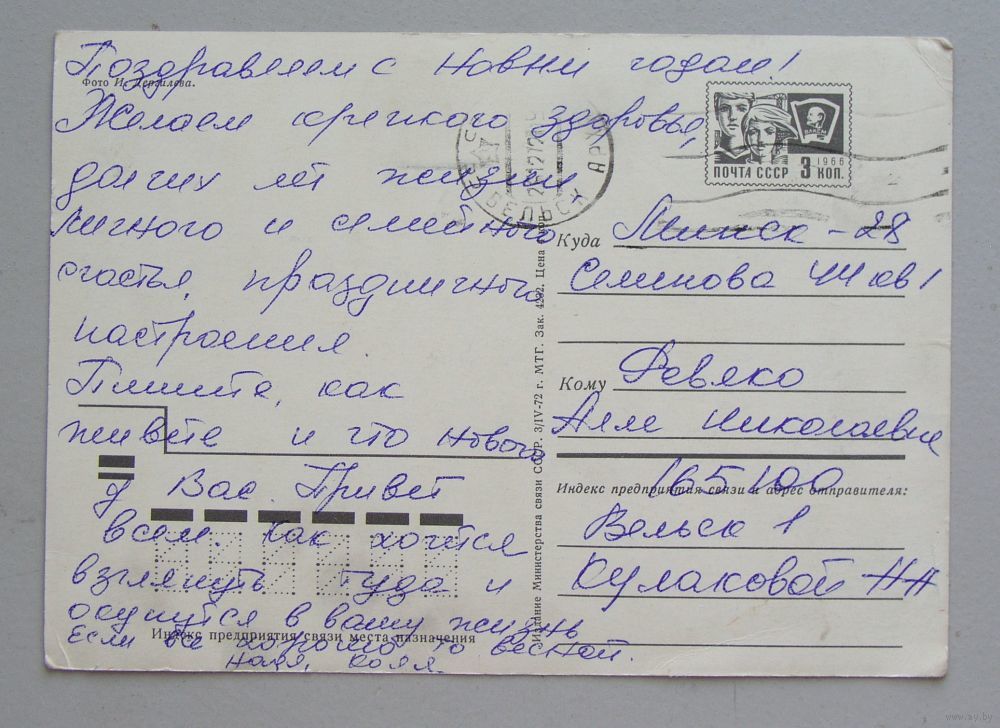 Поздравляем с новым годом!
Фото И. Дергилева.
Желаем крепкого здоровья,
долгих лет жизни
личного и семейного
счастья, праздничного
настроения.
Пишите, как
живёте и что нового
у Вас. Привет
всем. Как хочется
взглянуть туда и
окунуться в вашу жизнь
Если всё хорошо то весной.
Коля.
Индекс предприятия связи места назначения
Издание Министерства связи СССР. 3/IV-72 г. МТГ. Зак. 4292. Цена
ВЛКСМ
1966
ПОЧТА СССР 3 КОП.
Куда Минск - 28
Семенова 44 кв 1
Кому Ревяко
Алле Николаевне
Индекс предприятия связи и адрес отправителя:
165100
Вельск 1
Кулаковой НН
www.ay.by